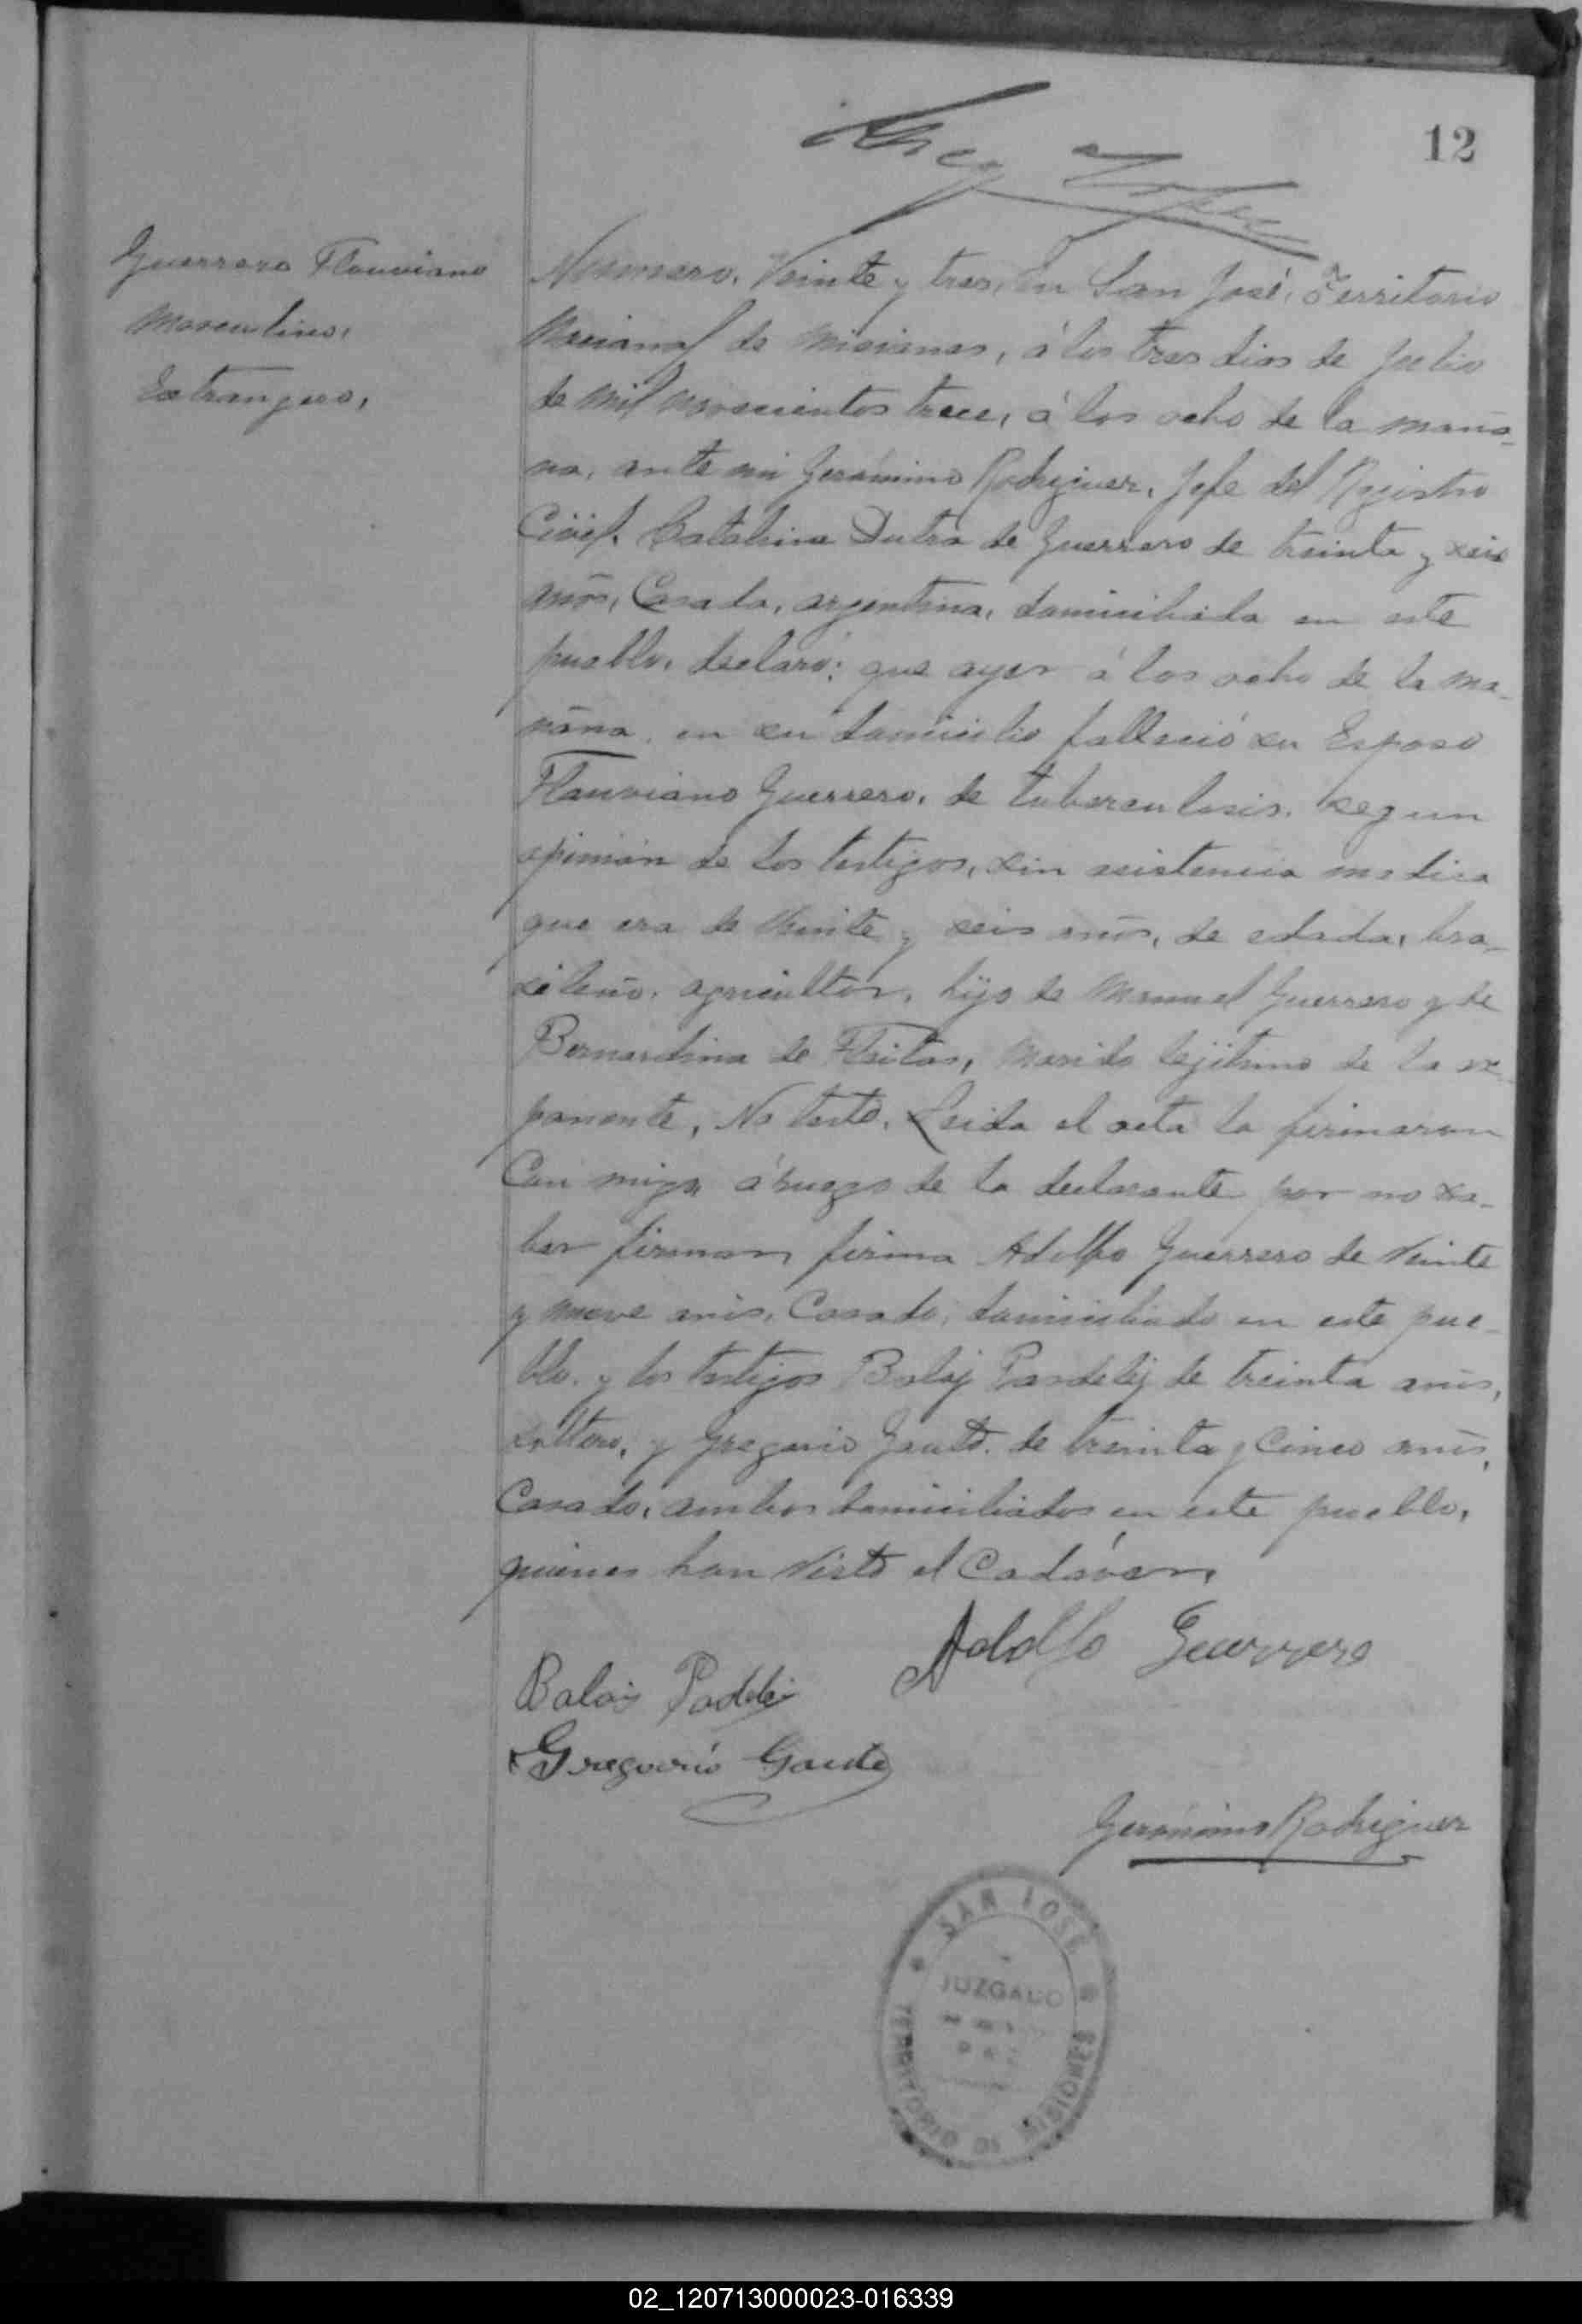 12
Guerrero Flauviano
Masculino,
Extrangero,
Numero. Veinte y tres, En San José, Territorio
Nacional de Misiones, á los tres dias de Julio
de mil novecientos trece, á las ocho de la maña-
na, ante mi Gerónimo Rodriguez, Jefe del Registro
Civil, Catalina Dutra de Guerrero de treinta y seis
años, Casada, argentina, domiciliada en este
pueblo, declaró: que ayer á las ocho de la ma-
ñana, en su domicilio falleció su Esposo
Flauviano Guerrero, de tuberculosis, segun
opinión de los testigos, sin asistencia medica
que era de Veinte y seis años, de edada, bra-
sileño, agricultor, hijo de Manuel Guerrero y de
Bernardina de Fleitas, marido lejitimo de la ex-
ponente, No testó, Leida el acta la firmaron
Con migo, á ruego de la declarante por no sa-
ber firmar, firma Adolfo Guerrero de Veinte
y nueve años, Casado, domiciliado en este pue-
blo, y los testigos Balaj de treinta años,
soltero, y Gregorio de treinta y Cinco años,
Casado, ambos domiciliados en este pueblo,
quienes han Visto el Cadáver,
Adolfo Guerrero
Balaj
Gregorio
Gerónimo Rodriguez
SAN JOSE
JUZGADO
TERRITORIO DE MISIONES
02_120713000023-016339